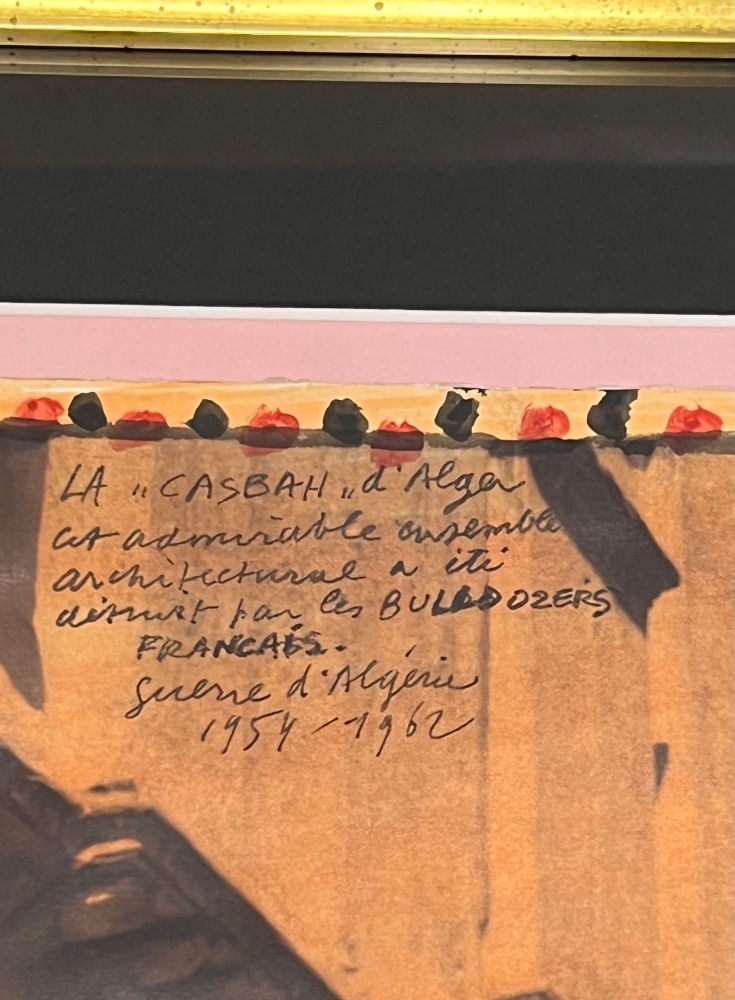 LA „CASBAH„ d'Alger
cet admirable ensemble
architectural a été
détruit par les BULLDOZERS
FRANCAIS.
guerre d'Algérie
1954-1962